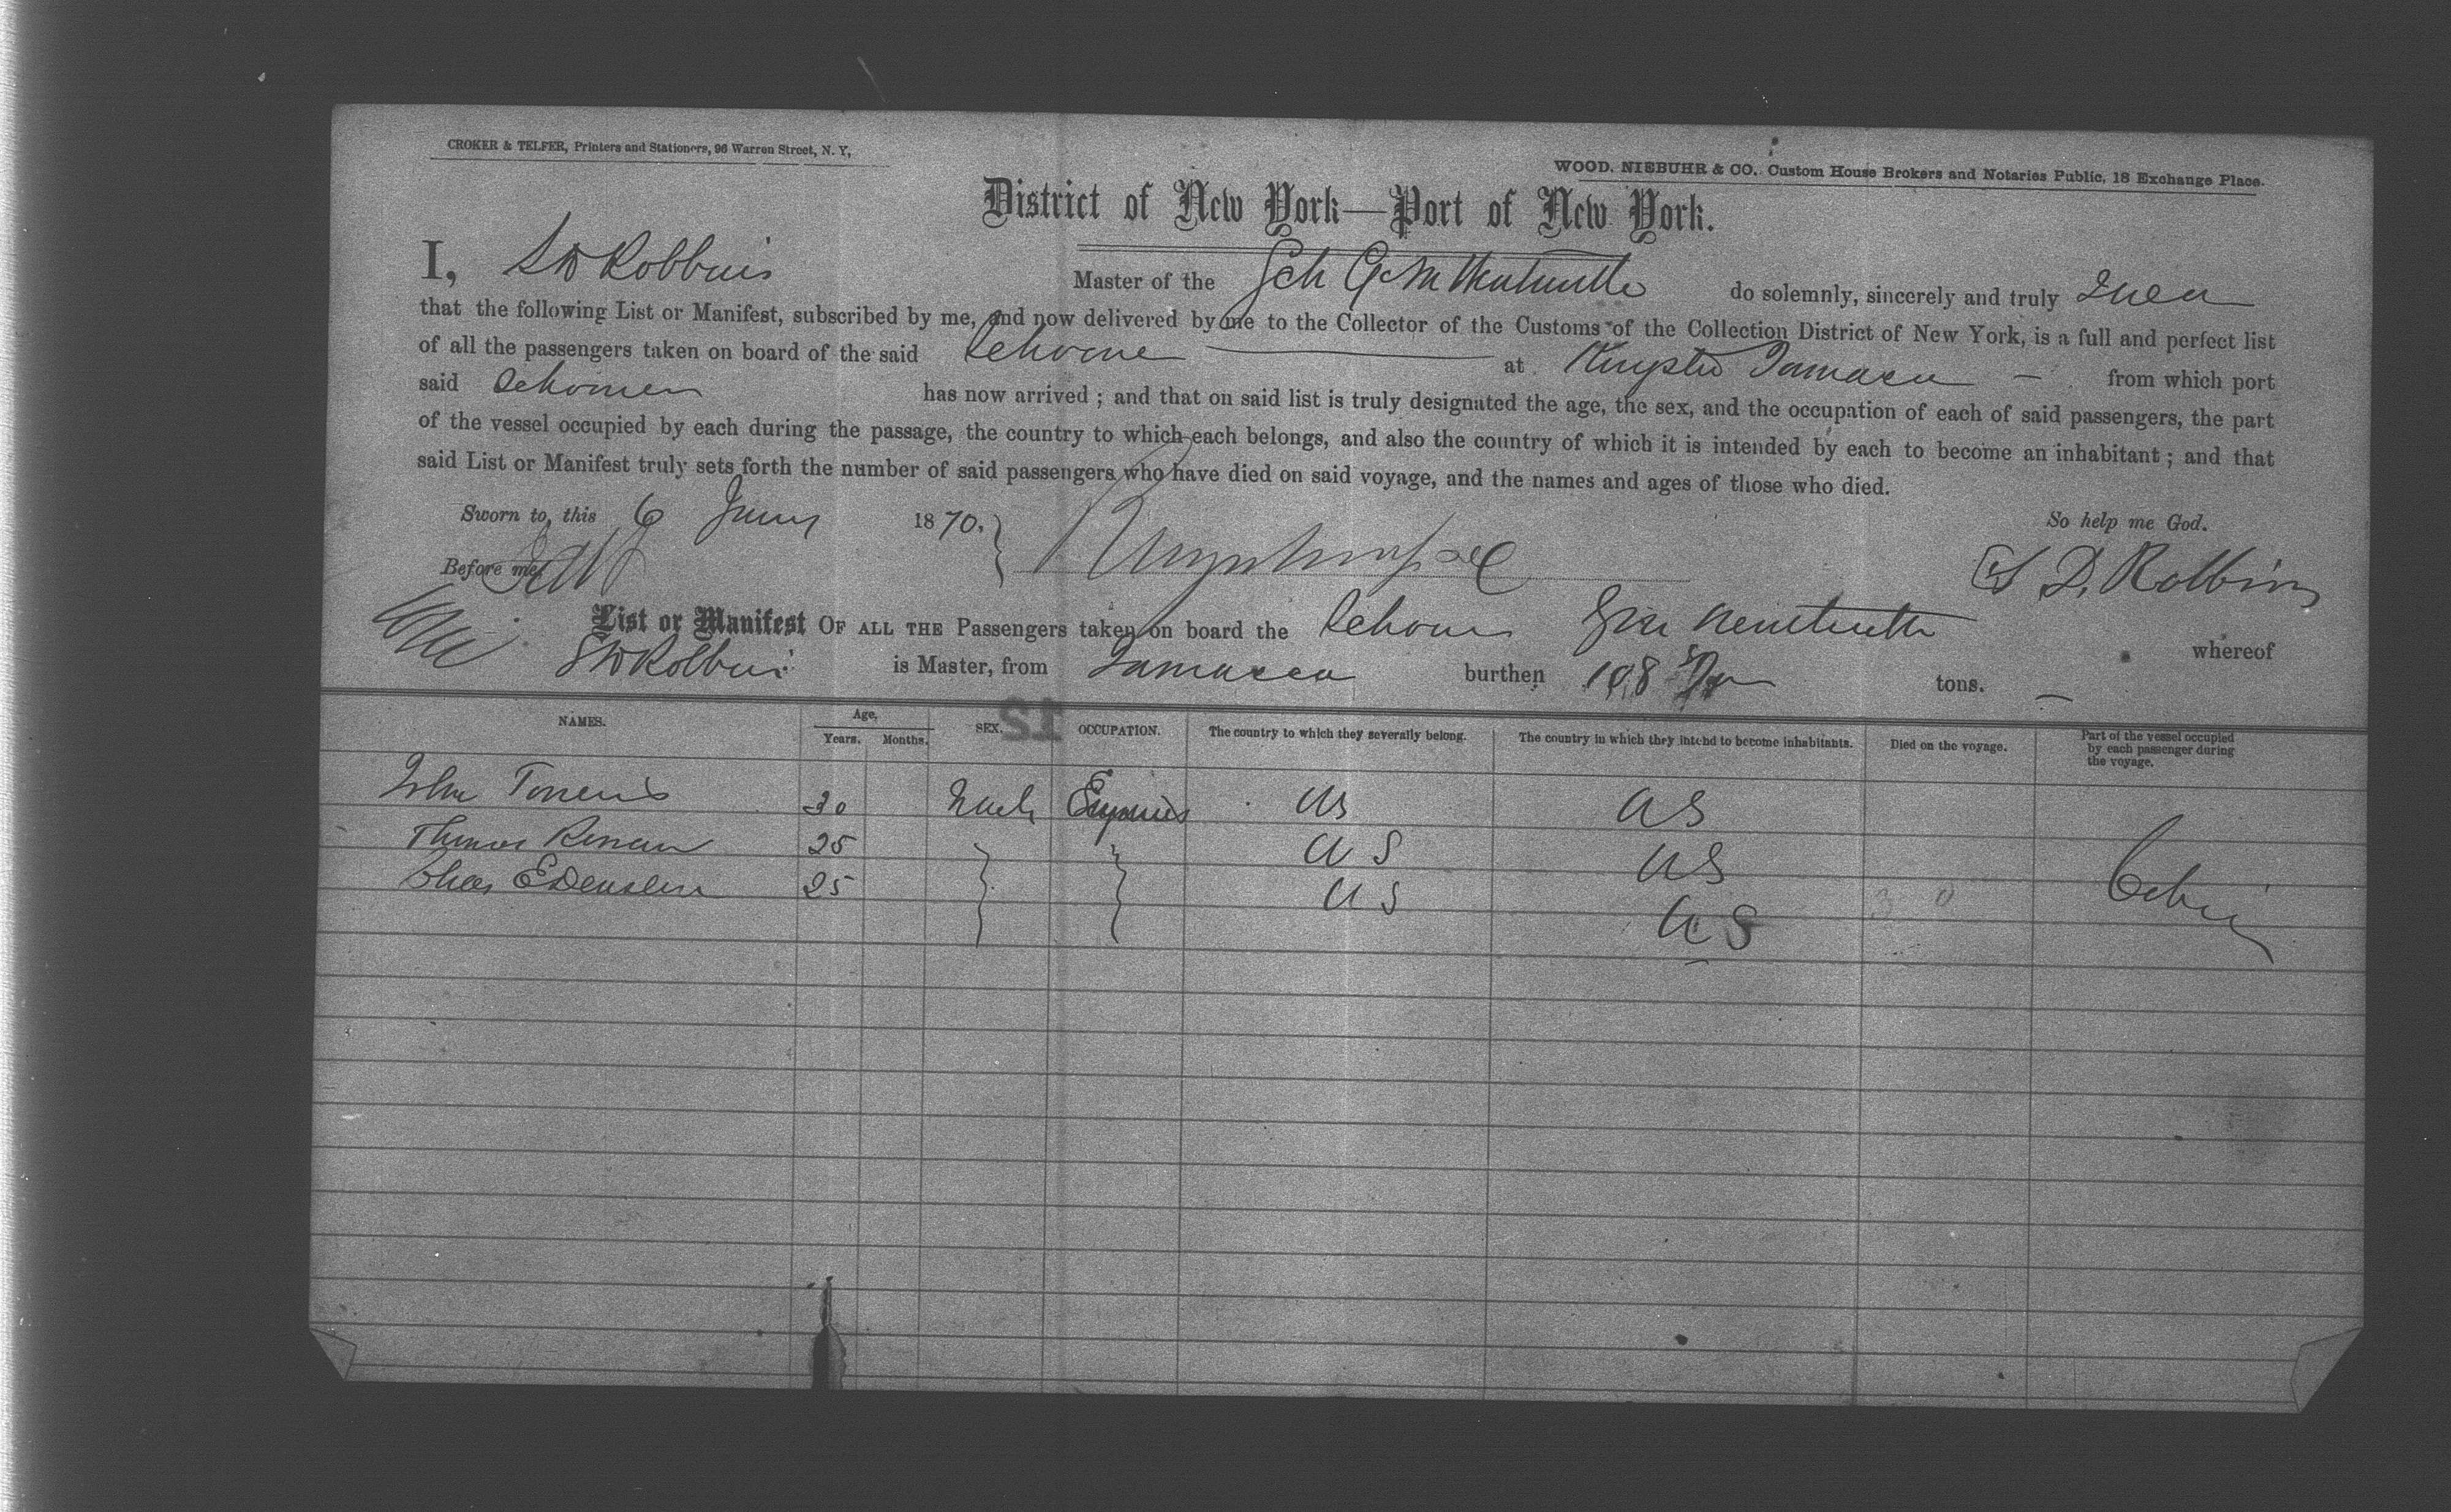 CROKER & TELFER, Printers and Stationers, 96 Warren Street, N. Y,
WOOD. NIEBUHR & CO. Custom House Brokers and Notaries Public, 18 Exchange Place.
District of New York—Port of New York.
I, S D Robbins Master of the Sch do solemnly, sincerely and truly
that the following List or Manifest, subscribed by me, and now delivered by me to the Collector of the Customs of the Collection District of New York, is a full and perfect list
of all the passengers taken on board of the said at Jamaica from which port
said has now arrived ; and that on said list is truly designated the age, the sex, and the occupation of each of said passengers, the part
of the vessel occupied by each during the passage, the country to which each belongs, and also the country of which it is intended by each to become an inhabitant ; and that
said List or Manifest truly sets forth the number of said passengers who have died on said voyage, and the names and ages of those who died.
Sworn to, this 6 1870. So help me God.
Before me, S D. Robbins
List or Manifest OF ALL THE Passengers taken on board the whereof
S D Robbins is Master, from Jamaica burthen 108 tons.
12
NAMES. Age, Years. Months. SEX. OCCUPATION. The country to which they severally belong. The country in which they intend to become inhabitants. Died on the voyage. Part of the vessel occupied by each passenger during the voyage.
John 30 US US
Thomas 25 U S US
Chas 25 U S U S Cabin